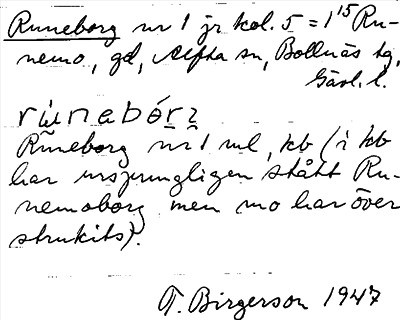 Runeborg nr 1 jr kol. 5 = 1¹⁵ Ru-
nemo, gd, Alfta sn, Bollnäs tg,
Gävl. l.
Runeborg nr 1 ml, kb (i kb
har ursprungligen stått Ru-
nemoborg men mo har över
strukits).
T. Birgerson 1947